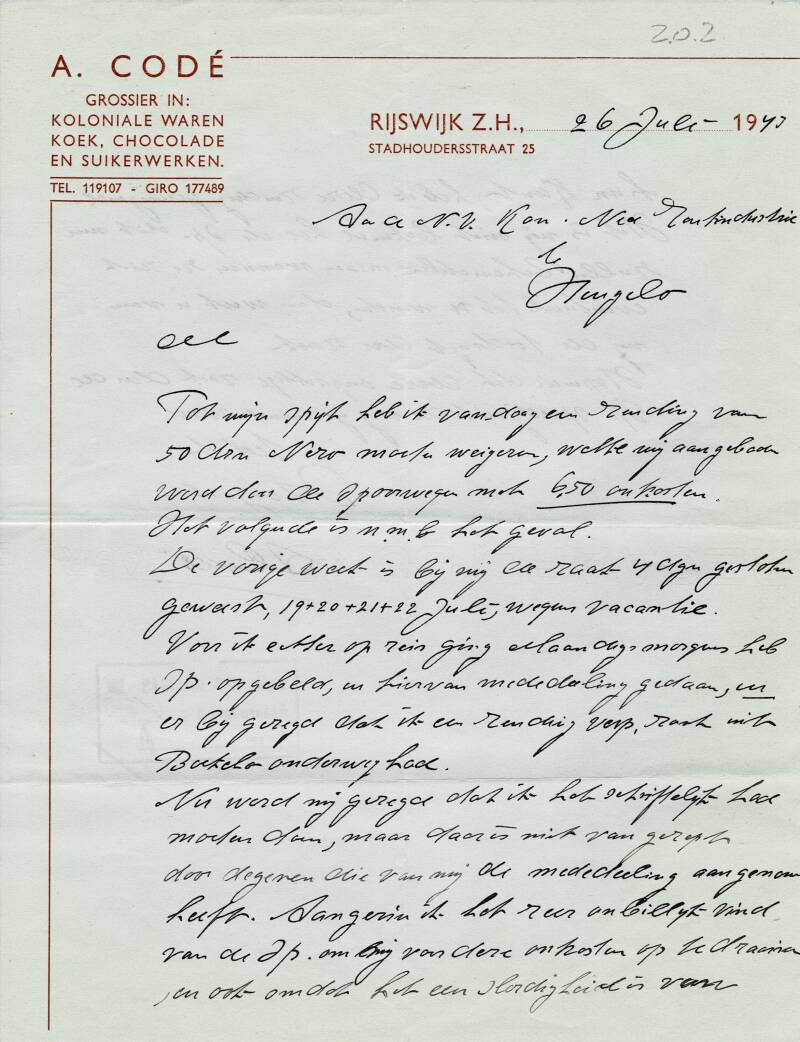 202
A. CODÉ
GROSSIER IN:
KOLONIALE WAREN
KOEK, CHOCOLADE
EN SUIKERWERKEN.
TEL. 119107 - GIRO 177489
RIJSWIJK Z.H., 26 Juli 1943
STADHOUDERSSTRAAT 25
Aan de N.V. Kon. Ned Zoutindustrie
te
Hengelo
Tot mijn spijt heb ik vandaag een zending van
50 dzn Nero moeten weigeren, welke mij aangeboden
werd door de Spoorwegen met 6,50 onkosten.
Het volgende is n.m.l. het geval.
De vorige week is bij mij de zaak 4 dgn gesloten
geweest, 19+20+21+22 Juli, wegens vacantie.
Voor ik echter op reis ging Maandagsmorgens heb
Sp. opgebeld, en hiervan mededeeling gedaan, en
er bij gezegd dat ik een zending verp. zout uit
Boekelo onderweg had.
Nu werd mij gezegd dat ik het schriftelijk had
moeten doen, maar daar is niet van gerept
door degenen die van mij de mededeeling aangenomen
heeft. Aangezien ik het zeer onbillijk vind
van de Sp. om mij voor deze onkosten op te draaien
en ook omdat het een slordigheid is van